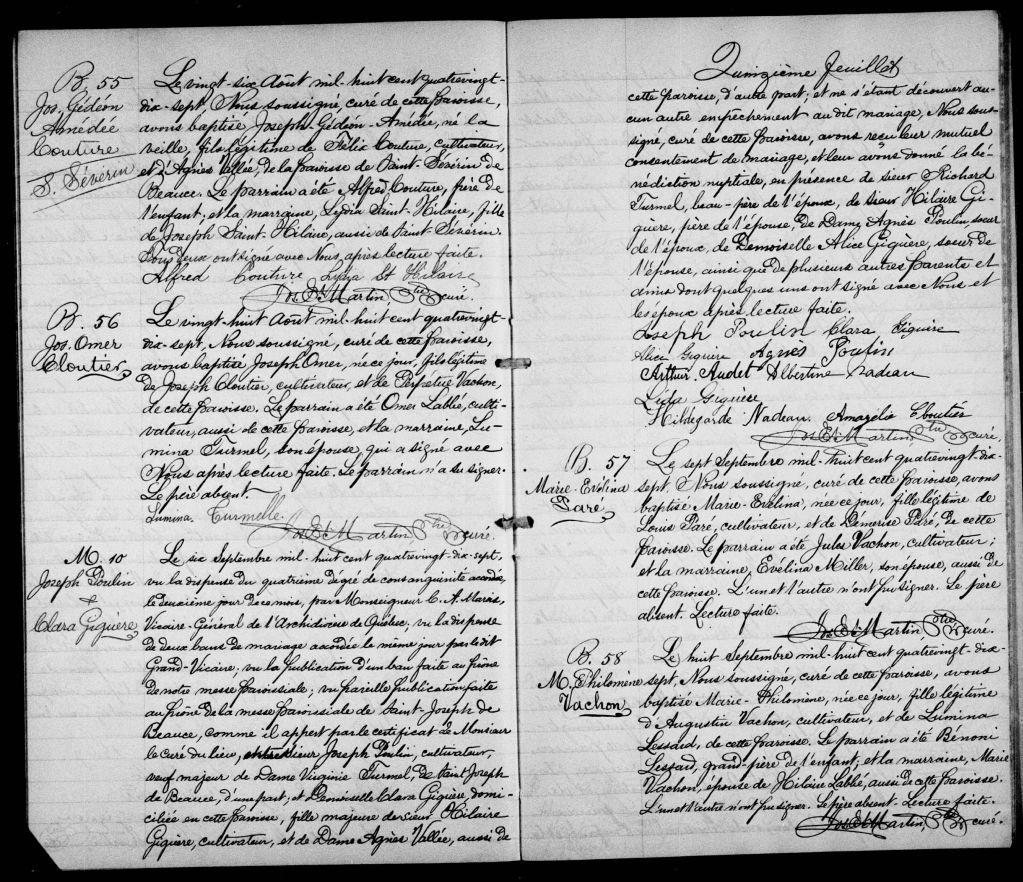 B. 55
Jos. Gédéon
Amédée
Couture
S. Séverin
Le vingt-six Août mil-huit cent quatrevingt-
dix-sept, Nous soussigné curé de cette paroisse,
avons baptisé Joseph-Gédéon-Amédée, né la
veille, fils légitime de Félix Couture, cultivateur,
et d'Agnès Vallée, de la paroisse de Saint-Séverin de
Beauce. Le parrain a été Alfred Couture, frère de
l'enfant; et la marraine, Lydia Saint-Hilaire, fille
de Joseph Saint-Hilaire, aussi de Saint Séverin.
Tous deux ont signé avec Nous après lecture faite.
Alfred Couture Lydia St Hilaire
Jos. E. Martin Ptre curé.
B. 56
Jos. Omer
Cloutier
Le vingt-huit Août mil-huit cent quatrevingt-
dix-sept, Nous soussigné, curé de cette paroisse,
avons baptisé Joseph Omer, né ce jour, fils légitime
de Joseph Cloutier, cultivateur, et de Perpétue Vachon,
de cette paroisse. Le parrain a été Omer Labbé, culti-
vateur, aussi de cette paroisse, et la marraine, Lu-
mina Turmel, son épouse, qui a signé avec
Nous après lecture faite. Le parrain n'a su signer.
Le père absent.
Lumina. Turmelle.
Jos. E. Martin Ptre curé.
M. 10
Joseph Poulin
&
Clara Giguère
Le six Septembre mil-huit cent quatrevingt-dix-sept,
vu la dispense du quatrième dégré de consanguinité accordée
le deuxième jour de ce mois, par Monseigneur C. A. Marois,
Vicaire-Général de l'Archidiocèse de Québec, vu la dispense
de deux bans de mariage accordée le même jour par le dit
Grand-Vicaire, vu la publication d'un ban faite au prône
de notre messe paroissiale; vu pareille publication faite
au prône de la messe paroissiale de Saint-Joseph de
Beauce, comme il appert par le certificat de Monsieur
le curé du lieu, entre sieur Joseph Poulin, cultivateur,
veuf majeur de Dame Virginie Turmel, de Saint Joseph
de Beauce, d'une part; et Demoiselle Clara Giguère, domi-
ciliée en cette paroisse, fille majeure de sieur Hilaire
Giguère, cultivateur, et de Dame Agnès Vallée, aussi de
Quinzième feuillet
cette paroisse, d'autre part; et ne s'étant découvert au-
cun autre empêchement au dit mariage, Nous sous-
signé, curé de cette paroisse, avons reçu leur mutuel
consentement de mariage, et leur avons donné la bé-
nédiction nuptiale, en présence de sieur Richard
Turmel, beau-père de l'époux, de sieur Hilaire Gi-
guère, père de l'épouse, de Dame Agnès Poulin, sœur
de l'époux, de Demoiselle Alice Giguère, sœur de
l'épouse, ainsi que de plusieurs autres parents et
amis dont quelques uns ont signé avec Nous et
les époux après lecture faite.
Joseph Poulin Clara Giguire
Alice Giguire Agnès Poulin
Arthur. Audet Albertine Nadeau
Lyda Giguère
Hildegarde Nadeau. Amazelia Cloutier
Jos. E. Martin Ptre curé.
B. 57
Marie-Evélina
Paré
Le sept Septembre mil-huit cent quatrevingt-dix-
sept, Nous soussigné, curé de cette paroisse, avons
baptisé Marie-Evelina, née ce jour, fille légitime de
Louis Paré, cultivateur, et de Démerise Paré, de cette
paroisse. Le parrain a été Jules Vachon, cultivateur;
et la marraine, Evelina Miller, son épouse, aussi de
cette paroisse. L'un et l'autre n'ont pu signer. Le père
absent. Lecture faite.
Jos. E. Martin Ptre curé.
B. 58
M. Philomène
Vachon
Le huit Septembre mil-huit cent quatrevingt-dix-
sept, Nous soussigné, curé de cette paroisse, avons
baptisé Marie-Philomène, née ce jour, fille légitime
d'Augustin Vachon, cultivateur, et de Lumina
Lessard, de cette paroisse. Le parrain a été Bénoni
Lessard, grand-père de l'enfant; et la marraine, Marie
Vachon, épouse de Hilaire Labbé, aussi de cette paroisse.
L'un et l'autre n'ont pu signer. Le père absent. Lecture faite.
Jos. E. Martin Ptre curé.